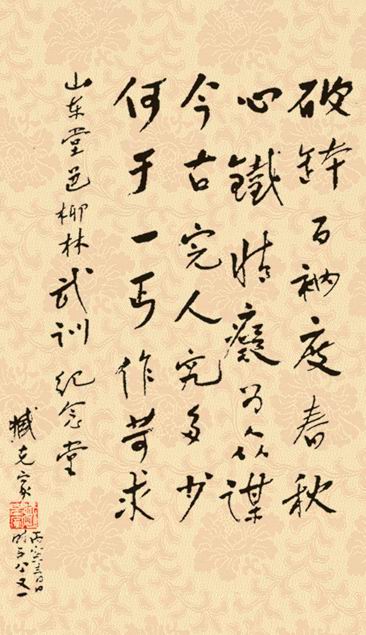 破缽百衲度春秋
心鐵情癡为众謀
今古完人究多少
何于一丐作苛求
山东堂邑柳林武训纪念堂
臧克家